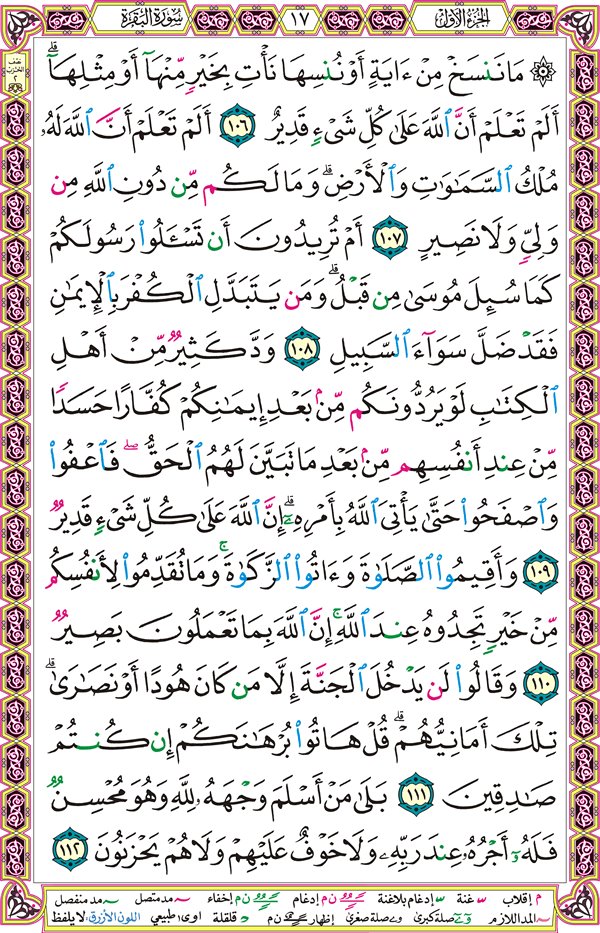 الجزء الأول
١٧
سورة البقرة
نصف الحزب ٢
۞ مَا نَنسَخْ مِنْ ءَايَةٍ أَوْ نُنسِهَا نَأْتِ بِخَيْرٍ مِّنْهَآ أَوْ مِثْلِهَآ ۗ
أَلَمْ تَعْلَمْ أَنَّ ٱللَّهَ عَلَىٰ كُلِّ شَىْءٍ قَدِيرٌ ١٠٦ أَلَمْ تَعْلَمْ أَنَّ ٱللَّهَ لَهُۥ
مُلْكُ ٱلسَّمَـٰوَٰتِ وَٱلْأَرْضِ ۗ وَمَا لَكُم مِّن دُونِ ٱللَّهِ مِن
وَلِىٍّ وَلَا نَصِيرٍ ١٠٧ أَمْ تُرِيدُونَ أَن تَسْـَٔلُوا۟ رَسُولَكُمْ
كَمَا سُئِلَ مُوسَىٰ مِن قَبْلُ ۗ وَمَن يَتَبَدَّلِ ٱلْكُفْرَ بِٱلْإِيمَـٰنِ
فَقَدْ ضَلَّ سَوَآءَ ٱلسَّبِيلِ ١٠٨ وَدَّ كَثِيرٌ مِّنْ أَهْلِ
ٱلْكِتَـٰبِ لَوْ يَرُدُّونَكُم مِّنۢ بَعْدِ إِيمَـٰنِكُمْ كُفَّارًا حَسَدًا
مِّنْ عِندِ أَنفُسِهِم مِّنۢ بَعْدِ مَا تَبَيَّنَ لَهُمُ ٱلْحَقُّ ۖ فَٱعْفُوا۟
وَٱصْفَحُوا۟ حَتَّىٰ يَأْتِىَ ٱللَّهُ بِأَمْرِهِۦٓ ۗ إِنَّ ٱللَّهَ عَلَىٰ كُلِّ شَىْءٍ قَدِيرٌ
١٠٩ وَأَقِيمُوا۟ ٱلصَّلَوٰةَ وَءَاتُوا۟ ٱلزَّكَوٰةَ ۚ وَمَا تُقَدِّمُوا۟ لِأَنفُسِكُم
مِّنْ خَيْرٍ تَجِدُوهُ عِندَ ٱللَّهِ ۗ إِنَّ ٱللَّهَ بِمَا تَعْمَلُونَ بَصِيرٌ
١١٠ وَقَالُوا۟ لَن يَدْخُلَ ٱلْجَنَّةَ إِلَّا مَن كَانَ هُودًا أَوْ نَصَـٰرَىٰ ۗ
تِلْكَ أَمَانِيُّهُمْ ۗ قُلْ هَاتُوا۟ بُرْهَـٰنَكُمْ إِن كُنتُمْ
صَـٰدِقِينَ ١١١ بَلَىٰ مَنْ أَسْلَمَ وَجْهَهُۥ لِلَّهِ وَهُوَ مُحْسِنٌ
فَلَهُۥٓ أَجْرُهُۥ عِندَ رَبِّهِۦ وَلَا خَوْفٌ عَلَيْهِمْ وَلَا هُمْ يَحْزَنُونَ ١١٢
م إقلاب غنة إدغام بلاغنة ن م إدغام إخفاء مد متصل مد منفصل
المد اللازم صلة كبرى صلة صغرى إظهار ن م قلقلة اوى؛ طبيعي اللون الأزرق، لا يلفظ